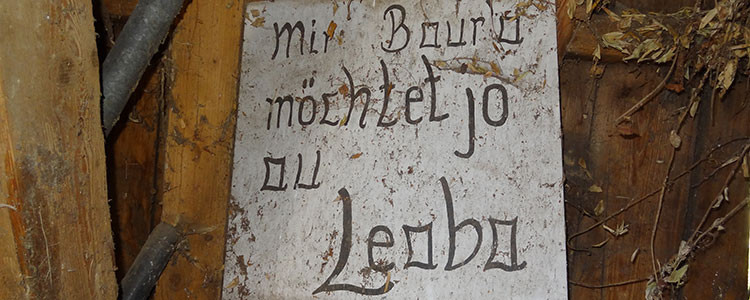 mir Baura
möchtet ja
au
Leaba